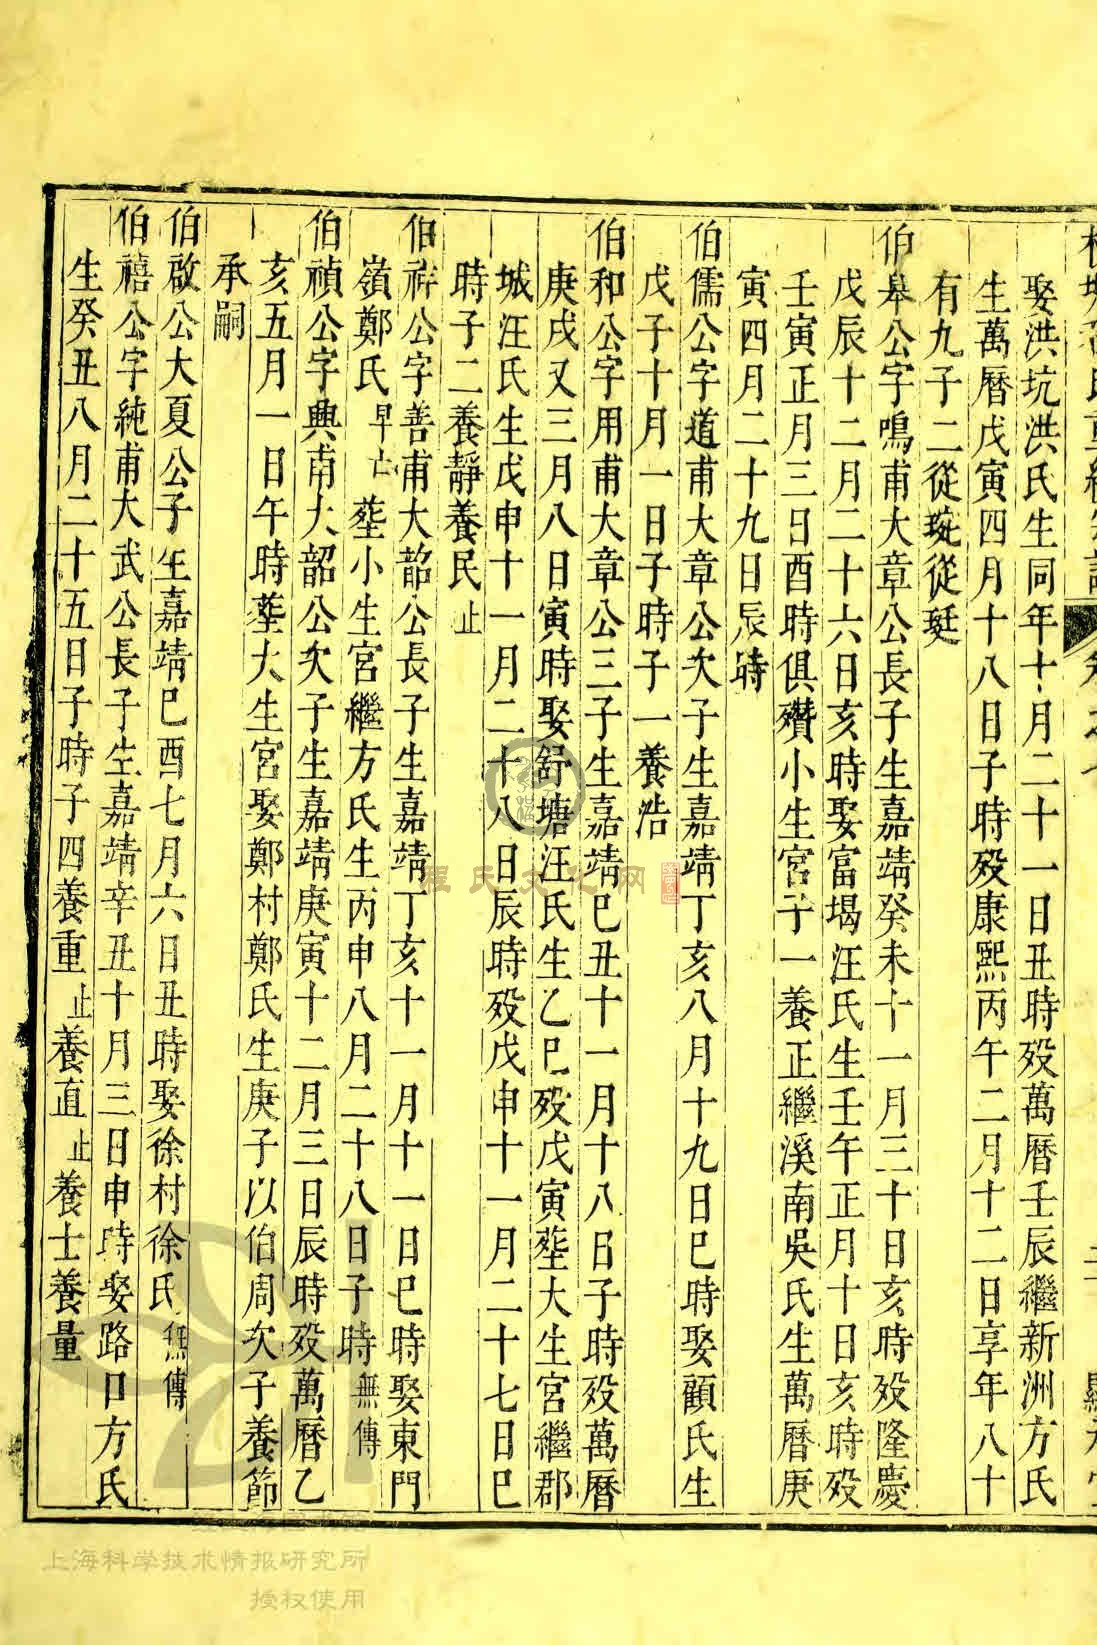 娶洪坑洪氏生同年十月二十一日丑時殁萬曆壬辰繼新洲方氏
生萬曆戊寅四月十八日子時殁康熙丙午二月十二日享年八十
有九子二從琁從珽
伯皋公字鳴甫大章公長子生嘉靖癸未十一月三十日亥時殁隆慶
戊辰十二月二十六日亥時娶富堨汪氏生壬午正月十日亥時殁
壬寅正月三日酉時俱殯小生宮子一養正繼溪南吳氏生萬曆庚
寅四月二十九日辰時
伯儒公字道甫大章公次子生嘉靖丁亥八月十九日巳時娶顧氏生
戊子十月一日子時子一養浩
伯和公字用甫大章公三子生嘉靖己丑十一月十八日子時殁萬曆
庚戌又三月八日寅時娶舒塘汪氏生乙巳殁戊寅塟大生宮繼郡
城汪氏生戊申十一月二十八日辰時殁戊申十一月二十七日巳
時子二養靜養民止
伯祥公字善甫大韶公長子生嘉靖丁亥十一月十一日巳時娶東門
嶺鄭氏早亡塟小生宮繼方氏生丙申八月二十八日子時無傳
伯禎公字興甫大韶公次子生嘉靖庚寅十二月三日辰時殁萬曆乙
亥五月一日午時塟大生宮娶鄭村鄭氏生庚子以伯周次子養節
承嗣
伯啟公大夏公子生嘉靖己酉七月六日丑時娶徐村徐氏無傳
伯禧公字純甫大武公長子生嘉靖辛丑十月三日申時娶路口方氏
生癸丑八月二十五日子時子四養重止養直止養士養量
程氏文化网
上海科学技术情报研究所
授权使用